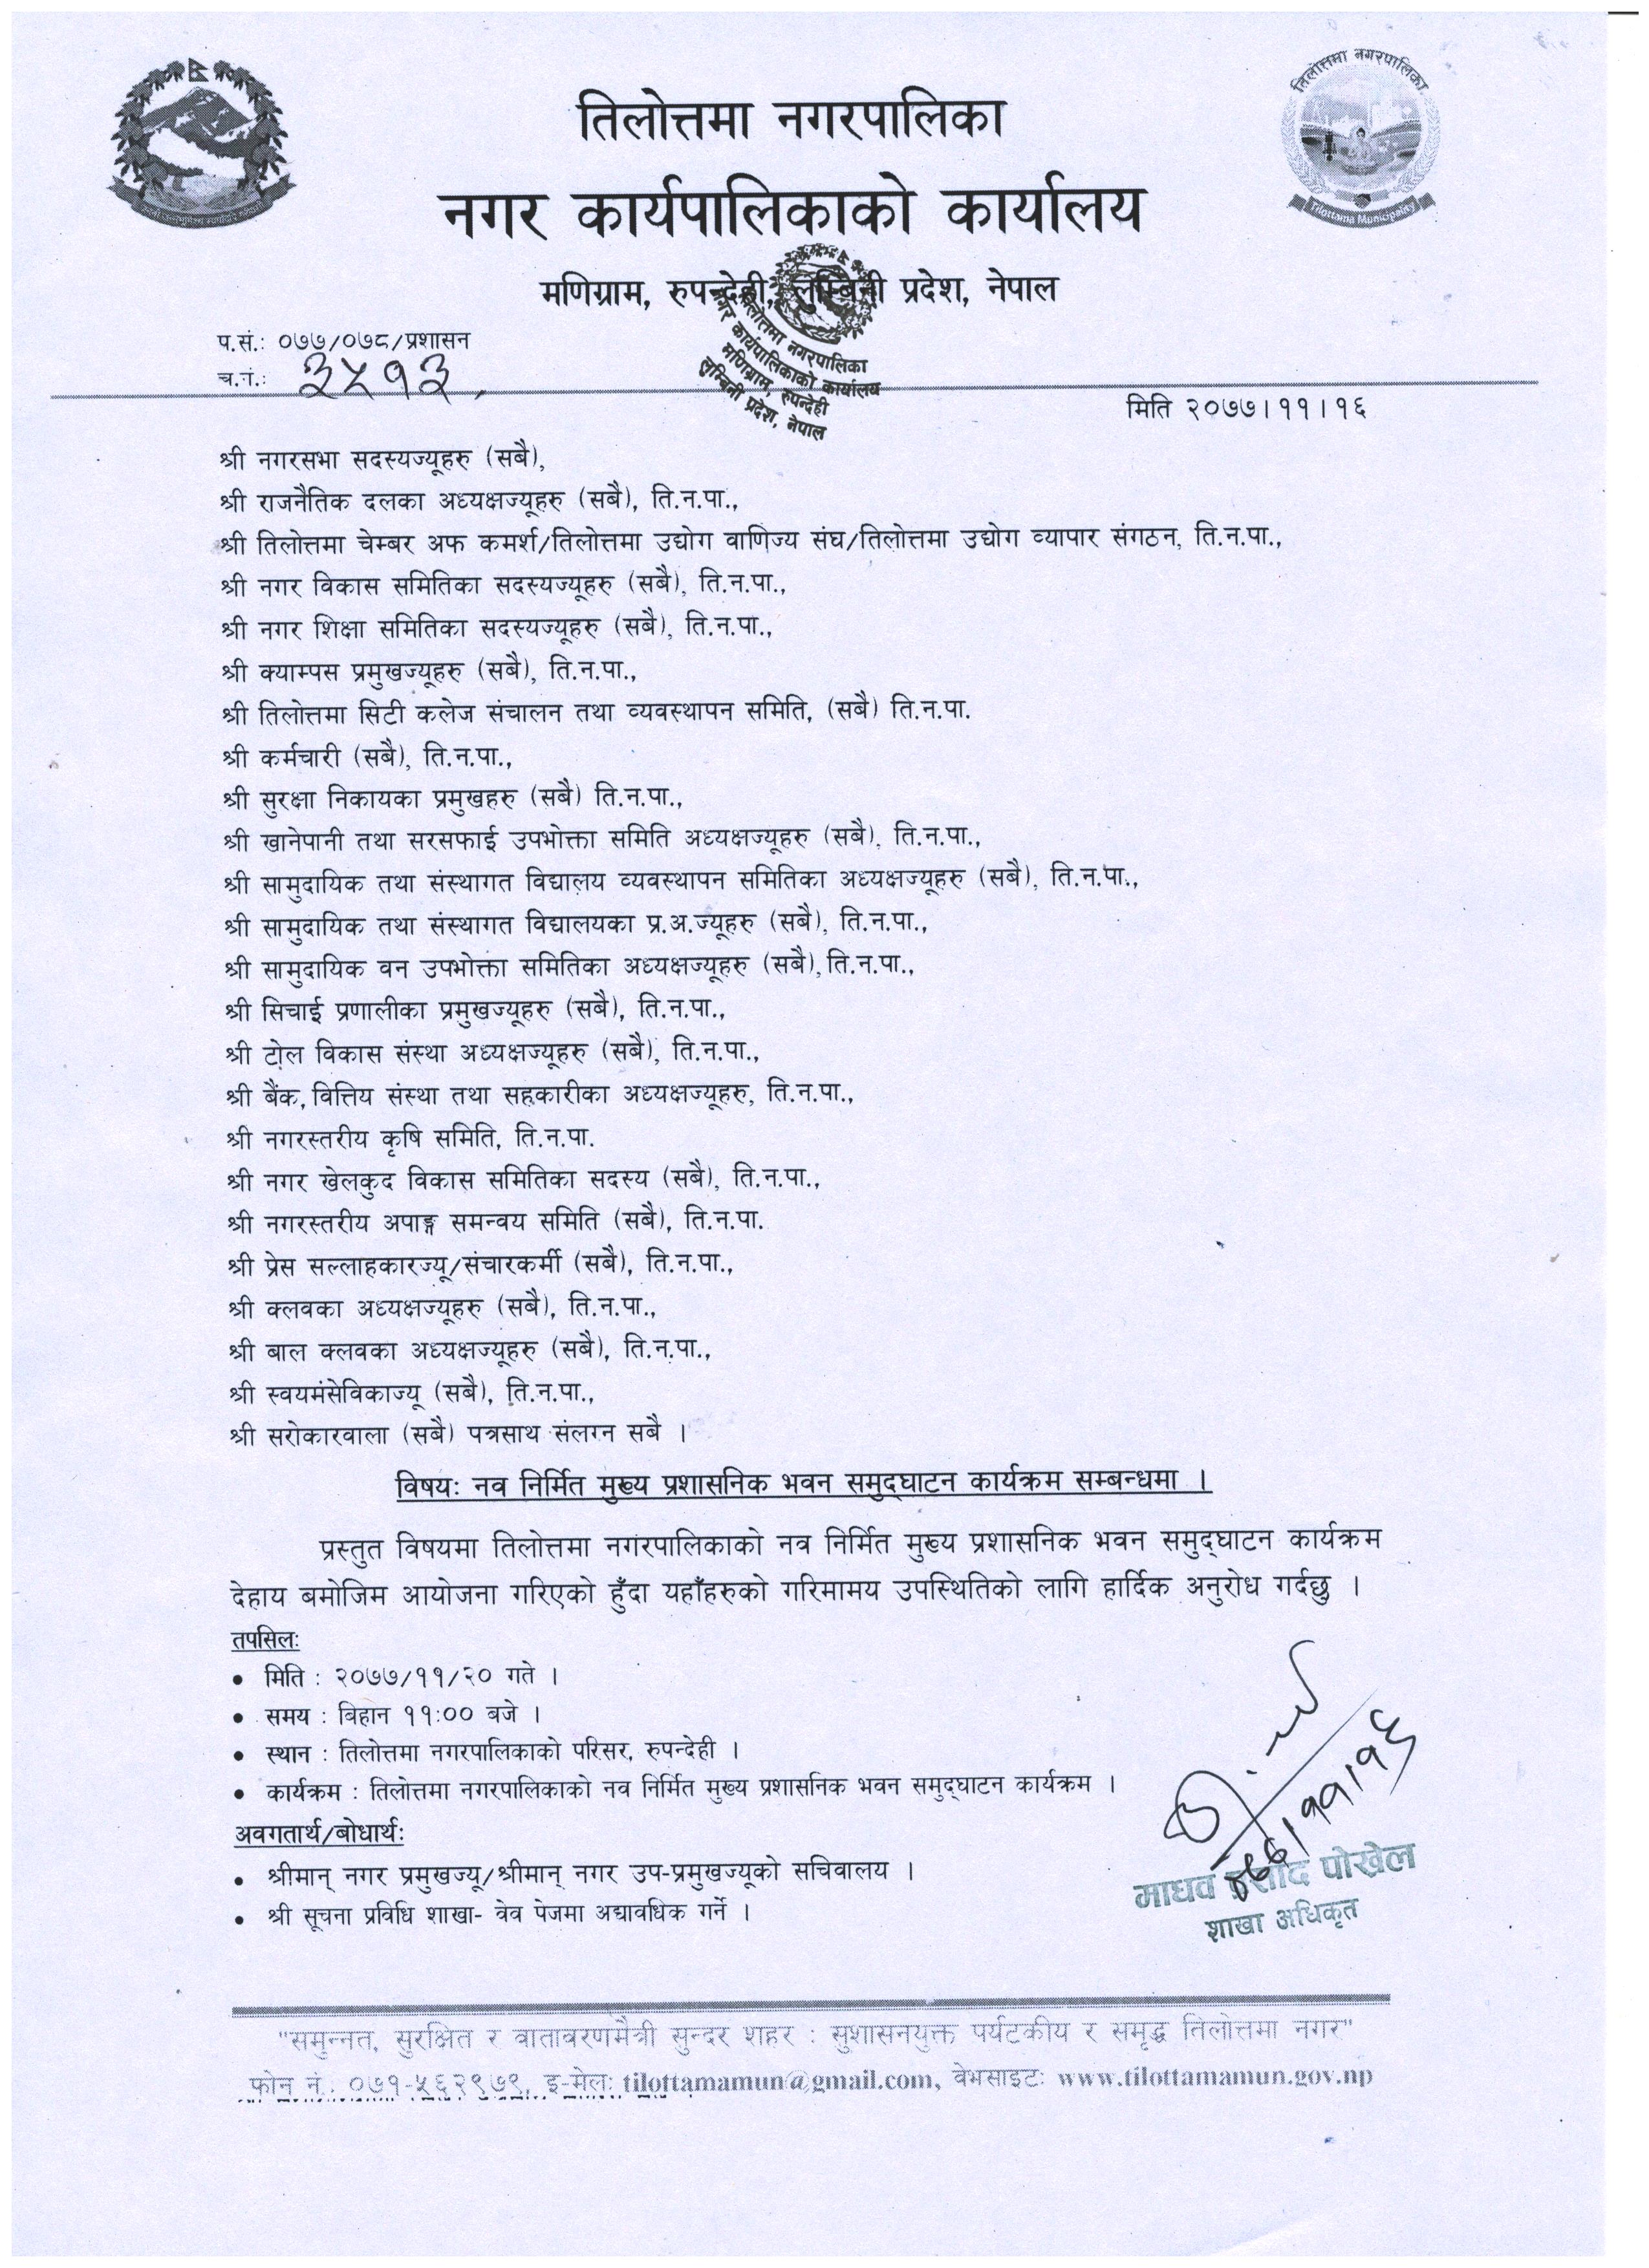 तिलोत्तमा नगरपालिका
तिलोत्तमा नगरपालिका
Tilottama Municipality
नगर कार्यपालिकाको कार्यालय
मणिग्राम, रुपन्देही, लुम्बिनी प्रदेश, नेपाल
तिलोत्तमा नगरपालिका
नगर कार्यपालिकाको कार्यालय
मणिग्राम, रुपन्देही
लुम्बिनी प्रदेश, नेपाल
प.सं.: ०७७/०७८/प्रशासन
च.नं.: ३५१३
मिति २०७७।११।१६
श्री नगरसभा सदस्यज्यूहरु (सबै),
श्री राजनैतिक दलका अध्यक्षज्यूहरु (सबै), ति.न.पा.,
श्री तिलोत्तमा चेम्बर अफ कमर्श/तिलोत्तमा उद्योग वाणिज्य संघ/तिलोत्तमा उद्योग व्यापार संगठन, ति.न.पा.,
श्री नगर विकास समितिका सदस्यज्यूहरु (सबै), ति.न.पा.,
श्री नगर शिक्षा समितिका सदस्यज्यूहरु (सबै), ति.न.पा.,
श्री क्याम्पस प्रमुखज्यूहरु (सबै), ति.न.पा.,
श्री तिलोत्तमा सिटी कलेज संचालन तथा व्यवस्थापन समिति, (सबै) ति.न.पा.
श्री कर्मचारी (सबै), ति.न.पा.,
श्री सुरक्षा निकायका प्रमुखहरु (सबै) ति.न.पा.,
श्री खानेपानी तथा सरसफाई उपभोक्ता समिति अध्यक्षज्यूहरु (सबै), ति.न.पा.,
श्री सामुदायिक तथा संस्थागत विद्यालय व्यवस्थापन समितिका अध्यक्षज्यूहरु (सबै), ति.न.पा.,
श्री सामुदायिक तथा संस्थागत विद्यालयका प्र.अ.ज्यूहरु (सबै), ति.न.पा.,
श्री सामुदायिक वन उपभोक्ता समितिका अध्यक्षज्यूहरु (सबै), ति.न.पा.,
श्री सिचाई प्रणालीका प्रमुखज्यूहरु (सबै), ति.न.पा.,
श्री टोल विकास संस्था अध्यक्षज्यूहरु (सबै), ति.न.पा.,
श्री बैंक, वित्तिय संस्था तथा सहकारीका अध्यक्षज्यूहरु, ति.न.पा.,
श्री नगरस्तरीय कृषि समिति, ति.न.पा.
श्री नगर खेलकुद विकास समितिका सदस्य (सबै), ति.न.पा.,
श्री नगरस्तरीय अपाङ्ग समन्वय समिति (सबै), ति.न.पा.
श्री प्रेस सल्लाहकारज्यू/संचारकर्मी (सबै), ति.न.पा.,
श्री क्लवका अध्यक्षज्यूहरु (सबै), ति.न.पा.,
श्री बाल क्लवका अध्यक्षज्यूहरु (सबै), ति.न.पा.,
श्री स्वयमंसेविकाज्यू (सबै), ति.न.पा.,
श्री सरोकारवाला (सबै) पत्रसाथ संलग्न सबै ।
विषयः नव निर्मित मुख्य प्रशासनिक भवन समुद्घाटन कार्यक्रम सम्बन्धमा ।
प्रस्तुत विषयमा तिलोत्तमा नगरपालिकाको नव निर्मित मुख्य प्रशासनिक भवन समुद्घाटन कार्यक्रम
देहाय बमोजिम आयोजना गरिएको हुँदा यहाँहरुको गरिमामय उपस्थितिको लागि हार्दिक अनुरोध गर्दछु ।
तपसिलः
• मिति : २०७७/११/२० गते ।
• समय : बिहान ११:०० बजे ।
• स्थान : तिलोत्तमा नगरपालिकाको परिसर, रुपन्देही ।
• कार्यक्रम : तिलोत्तमा नगरपालिकाको नव निर्मित मुख्य प्रशासनिक भवन समुद्घाटन कार्यक्रम ।
अवगतार्थ/बोधार्थः
• श्रीमान् नगर प्रमुखज्यू/श्रीमान् नगर उप-प्रमुखज्यूको सचिवालय ।
• श्री सूचना प्रविधि शाखा- वेव पेजमा अद्यावधिक गर्ने ।
०७७/११/१६
माधव प्रसाद पोखेल
शाखा अधिकृत
"समुन्नत, सुरक्षित र वातावरणमैत्री सुन्दर शहर : सुशासनयुक्त पर्यटकीय र समृद्ध तिलोत्तमा नगर"
फोन नं.: ०७१-५६२९७९, इ-मेलः tilottamamun@gmail.com, वेभसाइटः www.tilottamamun.gov.np